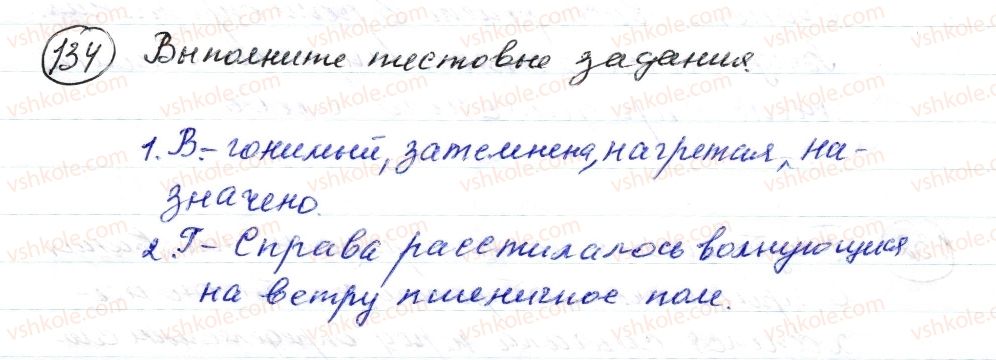 134 Выполните тестовые задания.
1. В.- гонимый, затемнена, нагретая, на-
значено.
2. Г- Справа расстилалось волнующися
на ветру пшеничное поле.